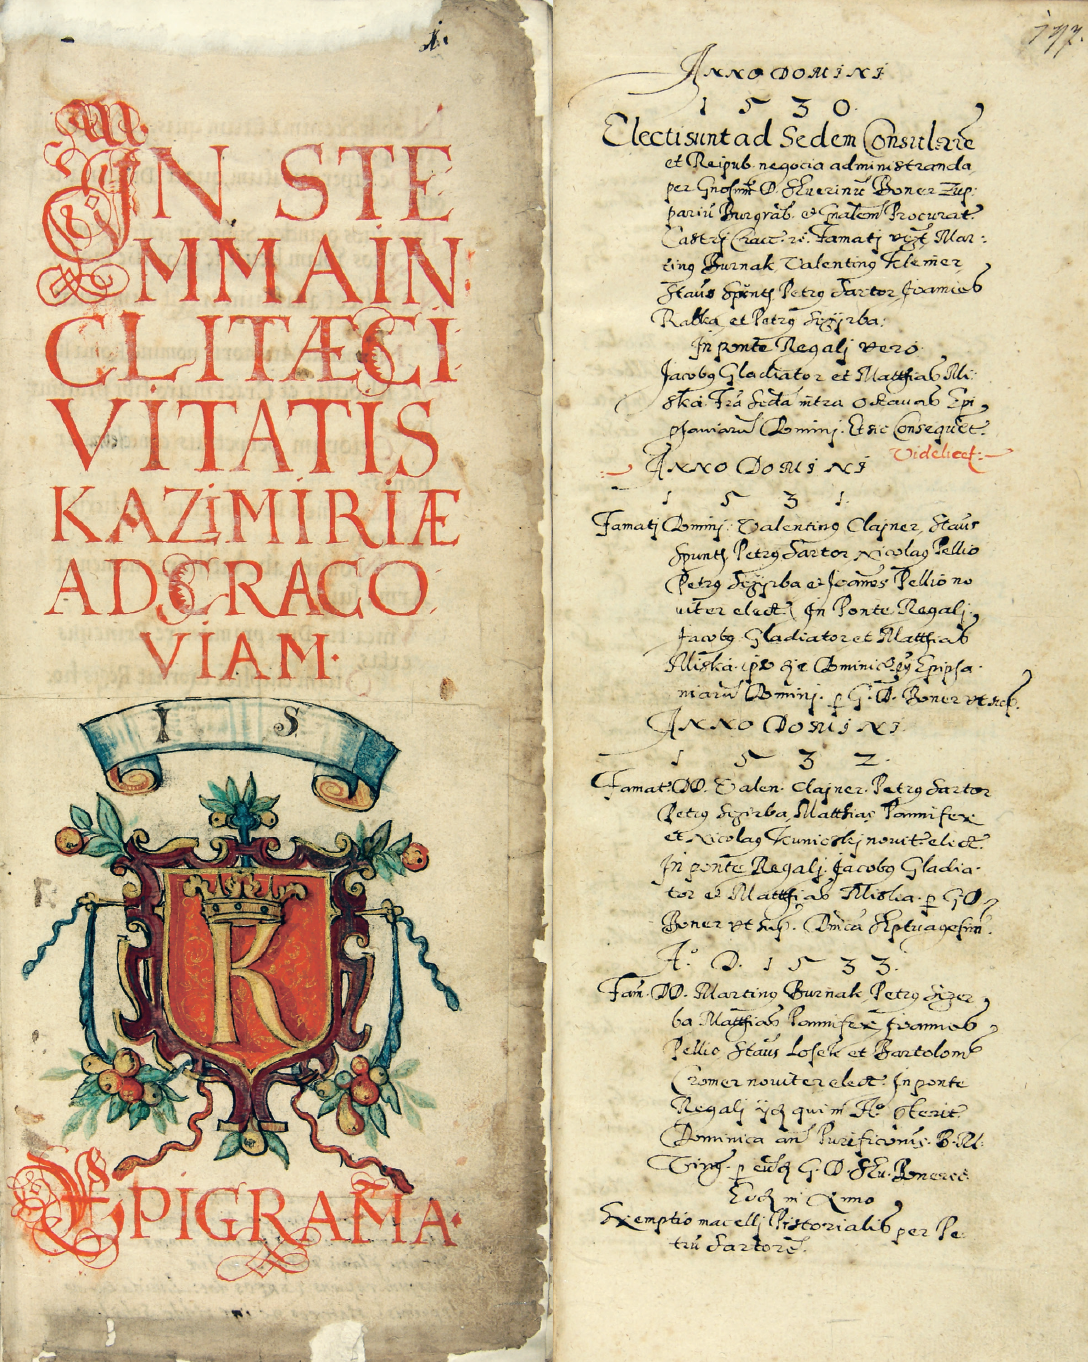 1.
IN STE
MMA IN
CLITÆ CI
VITATIS
KAZIMIRIÆ
AD CRACO
VIAM.
I S
K
EPIGRAM̃A.
177.
ANNO DOMINI
1530.
Electi sunt ad Sedem Consularē
et Reipub. negocia administranda
per D. Seuerinū Boner Zup:
pariū Burgrab. et Procurat.
Castrj Cracc. Famatj Mar:
tinq Burnak, Valentinq Klemer,
Staus Spuntj Petrq Sartor Joannes
Ratka et Petrq Szijrba:
In ponte Regalj vero
Jacobq Gladiator et Matthias Mi:
ska. intra Octauas Epi
phaniarū Dominj. Et sic Consequēt.
Videlicet:
ANNO DOMINI
1531.
Famatj Dominj: Valentinq Clajner, Staus
Spuntj Petrq Sartor Nicolaq Pellio
Petrq Szijrba et Joan̄es Pellio no
uiter elect. In Ponte Regalj.
Jacobq. Gladiator et Matthias
Miska. ipso die Dominico Epipha.
niarū Dominj. p G. D. Boner vt sup.
ANNO DOMINI
1532.
Famat. DD. Valen. Clajner. Petrq Sartor
Petrq Szijrba, Matthias Pannifex
et Nicolaq Kunicskj nouit. elect.
In ponte Regalj. Jacobq Gladia.
tor et Matthias Miska. p G. D.
Boner vt sup. Dn̄ica Septuagesim.
A. D. 1533.
Fam. DD. Martinq Burnak, Petrq Szijer
ba Matthias Pannifex Joannes
Pellio Staus Losek et Bartolom
Cromer nouiter elect. In ponte
Regalj ijdē qui in Aº pterit.
Dominica an̄ Purificonis. B. M.
Virg. p eūdē G. D. Seu. Boner.
Eodē in Anno
Exemptio macellj Pistorialis per Pe
trū Sartorē.